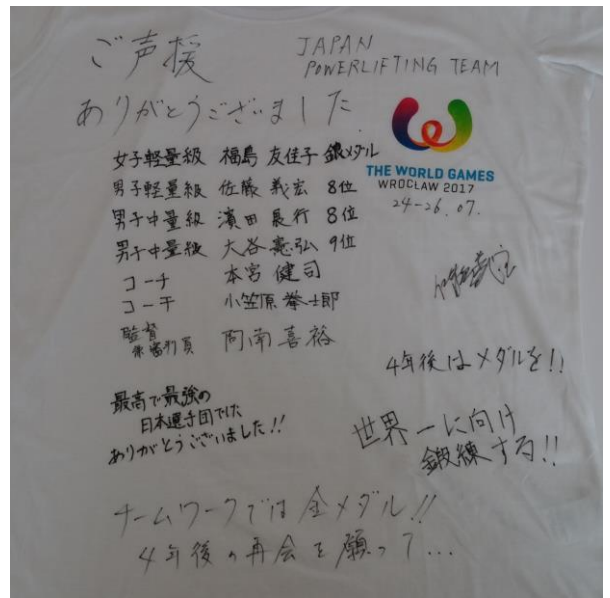 ご声援
JAPAN
POWERLIFTING TEAM
ありがとうございました
THE WORLD GAMES
WROCŁAW 2017
24-26.07.
女子軽量級 福島 友佳子 銀メダル
男子軽量級 佐藤 義宏 8位
男子中量級 濱田 泉行 8位
男子中量級 大谷 憲弘 9位
コーチ 本宮 健司
コーチ 小笠原 拳士郎
監督
兼審判員 阿南 喜裕
4年後はメダルを!!
最高で最強の
日本選手団でした
ありがとうございました!!
世界一に向け
鍛練する!!
チームワークでは金メダル!!
4年後の再会を願って...